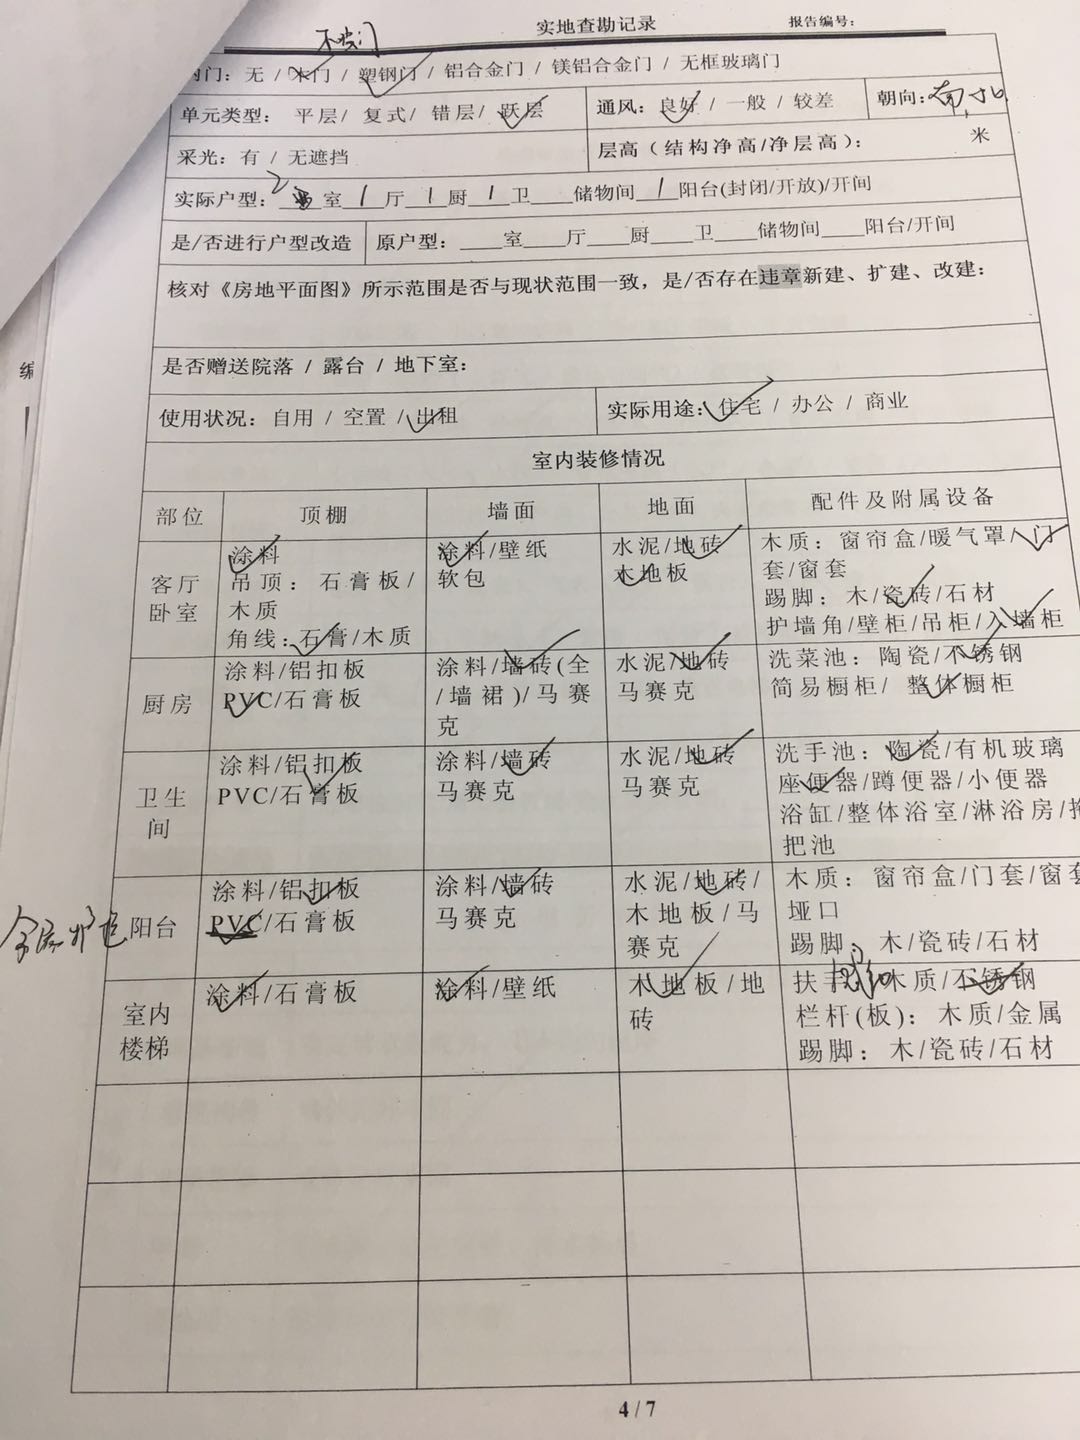 实地查勘记录
报告编号：
门：无 / 木门 / 塑钢门 / 铝合金门 / 镁铝合金门 / 无框玻璃门
单元类型： 平层/ 复式/ 错层/ 跃层
通风：良好 / 一般 / 较差
朝向：南北
采光：有 / 无遮挡
层高（结构净高/净层高）： 米
实际户型：2室1厅1厨1卫____储物间1阳台(封闭/开放)/开间
是/否进行户型改造
原户型：____室____厅____厨____卫____储物间____阳台/开间
核对《房地平面图》所示范围是否与现状范围一致，是/否存在违章新建、扩建、改建：
编
是否赠送院落 / 露台 / 地下室：
使用状况：自用 / 空置 / 出租
实际用途：住宅 / 办公 / 商业
室内装修情况
部位 顶棚 墙面 地面 配件及附属设备
客厅
卧室
涂料
吊顶：石膏板/
木质
角线：石膏/木质
涂料/壁纸
软包
水泥/地砖
木地板
木质：窗帘盒/暖气罩/门
套/窗套
踢脚：木/瓷砖/石材
护墙角/壁柜/吊柜/入墙柜
厨房
涂料/铝扣板
PVC/石膏板
涂料/墙砖(全
/墙裙)/马赛
克
水泥/地砖
马赛克
洗菜池：陶瓷/不锈钢
简易橱柜/ 整体橱柜
卫生
间
涂料/铝扣板
PVC/石膏板
涂料/墙砖
马赛克
水泥/地砖
马赛克
洗手池：陶瓷/有机玻璃
座便器/蹲便器/小便器
浴缸/整体浴室/淋浴房/拖
把池
阳台
涂料/铝扣板
PVC/石膏板
涂料/墙砖
马赛克
水泥/地砖/
木地板/马
赛克
木质：窗帘盒/门套/窗套
垭口
踢脚：木/瓷砖/石材
室内
楼梯
涂料/石膏板
涂料/壁纸
木地板/地
砖
扶手：木质/不锈钢
栏杆(板)：木质/金属
踢脚：木/瓷砖/石材
4 / 7